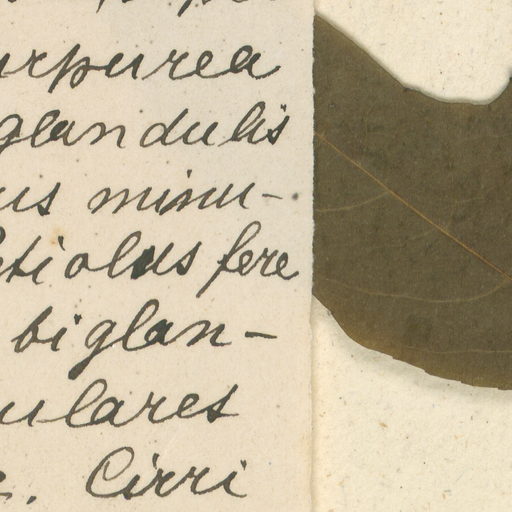 urpurea
glandulis
us minu-
etiolus fere
biglan-
ulares
Cirri